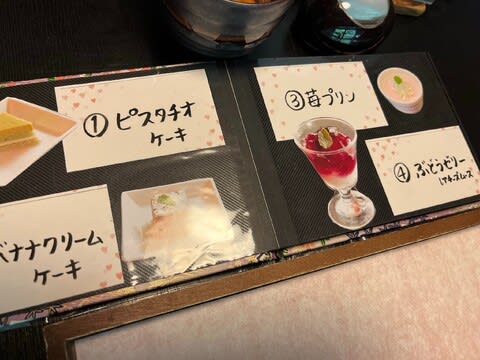 ①ピスタチオ
ケーキ
バナナクリーム
ケーキ
③苺プリン
④ぶどうゼリー